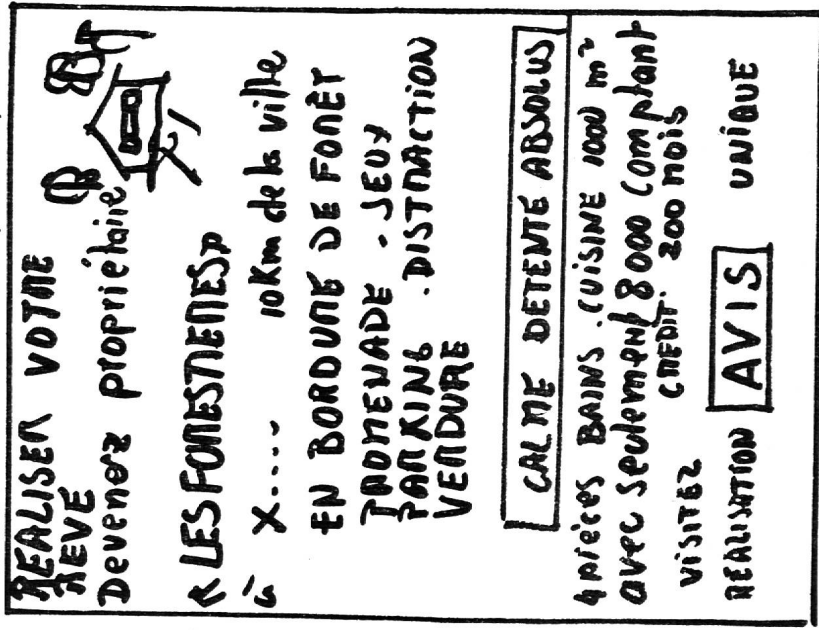 REALISER VOTRE
REVE
Devenez propriétaire
« LES FORESTIERES »
à X.... 10Km de la ville
EN BORDURE DE FORÊT
PROMENADE - JEUX
PARKING . DISTRACTION
VERDURE
CALME DETENTE ABSOLUS
4 pièces BAINS . CUISINE 1000 m²
avec seulement 8000 comptant
CREDIT. 200 mois
VISITEZ
REALISATION AVIS UNIQUE